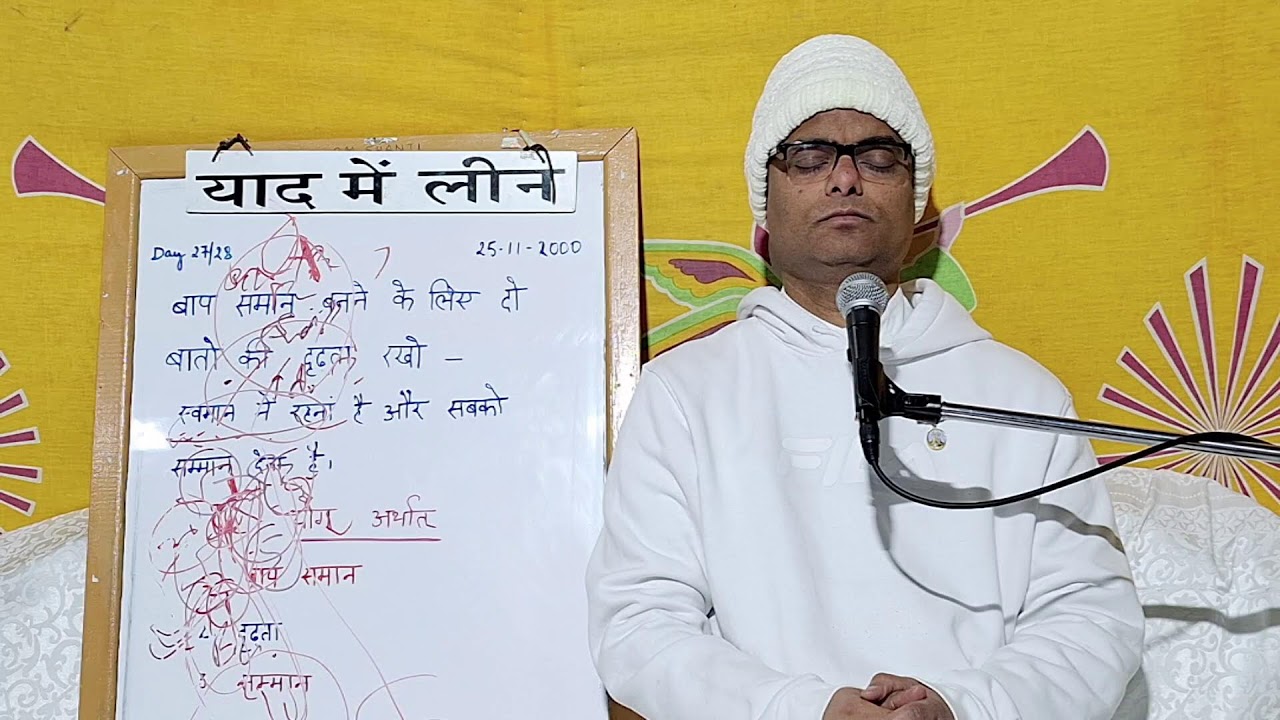 OM SHANTI
याद में लीन
Day 27/28 25-11-2000
बाप समान बनने के लिए दो
बातो की दृढता रखो –
स्वमान में रहना है और सबको
सम्मान देना है।
योग अर्थात
बाप समान
2. दृढता
3. सम्मान